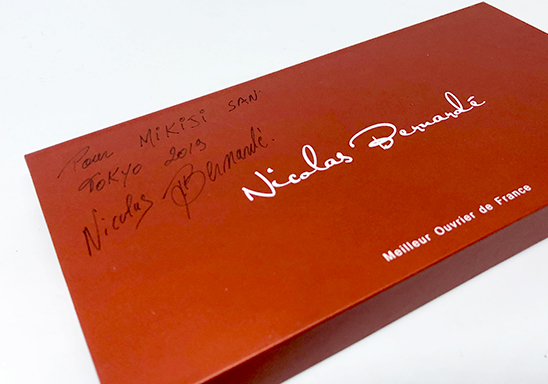 Pour MIKIJI SAN.
TOKYO 2019
Nicolas Bernardé.
Nicolas Bernardé
Meilleur Ouvrier de France